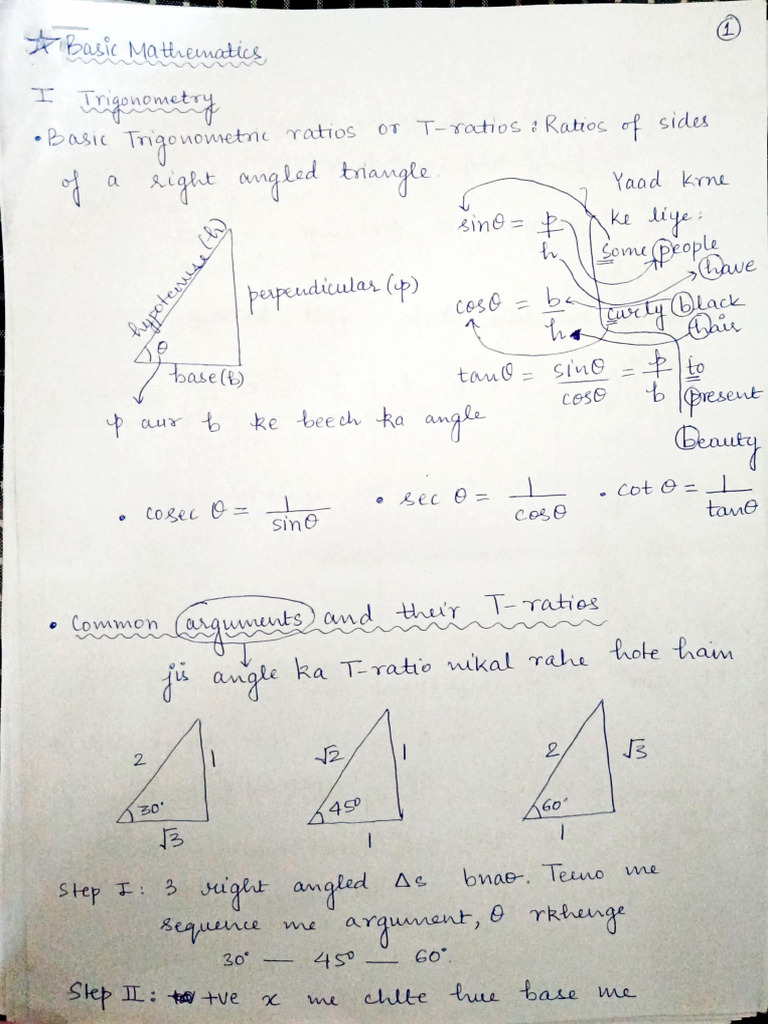 1
☆ Basic Mathematics
I Trigonometry
• Basic Trigonometric ratios or T-ratios : Ratios of sides
of a right angled triangle.
hypotenuse (h)
perpendicular (p)
θ
base (b)
p aur b ke beech ka angle
sinθ = p/h
cosθ = b/h
tanθ = sinθ/cosθ = p/b
Yaad krne
ke liye:
Some people
have
curly black
hair
to
present
beauty
• cosec θ = 1/sinθ • sec θ = 1/cosθ • cot θ = 1/tanθ
• Common arguments and their T-ratios
jis angle ka T-ratio nikal rahe hote hain
2 1 30° √3
√2 1 45° 1
2 √3 60° 1
Step I: 3 right angled Δs bnao. Teeno me
sequence me argument, θ rkhenge
30° — 45° — 60°.
Step II: +ve x me chlte hue base me